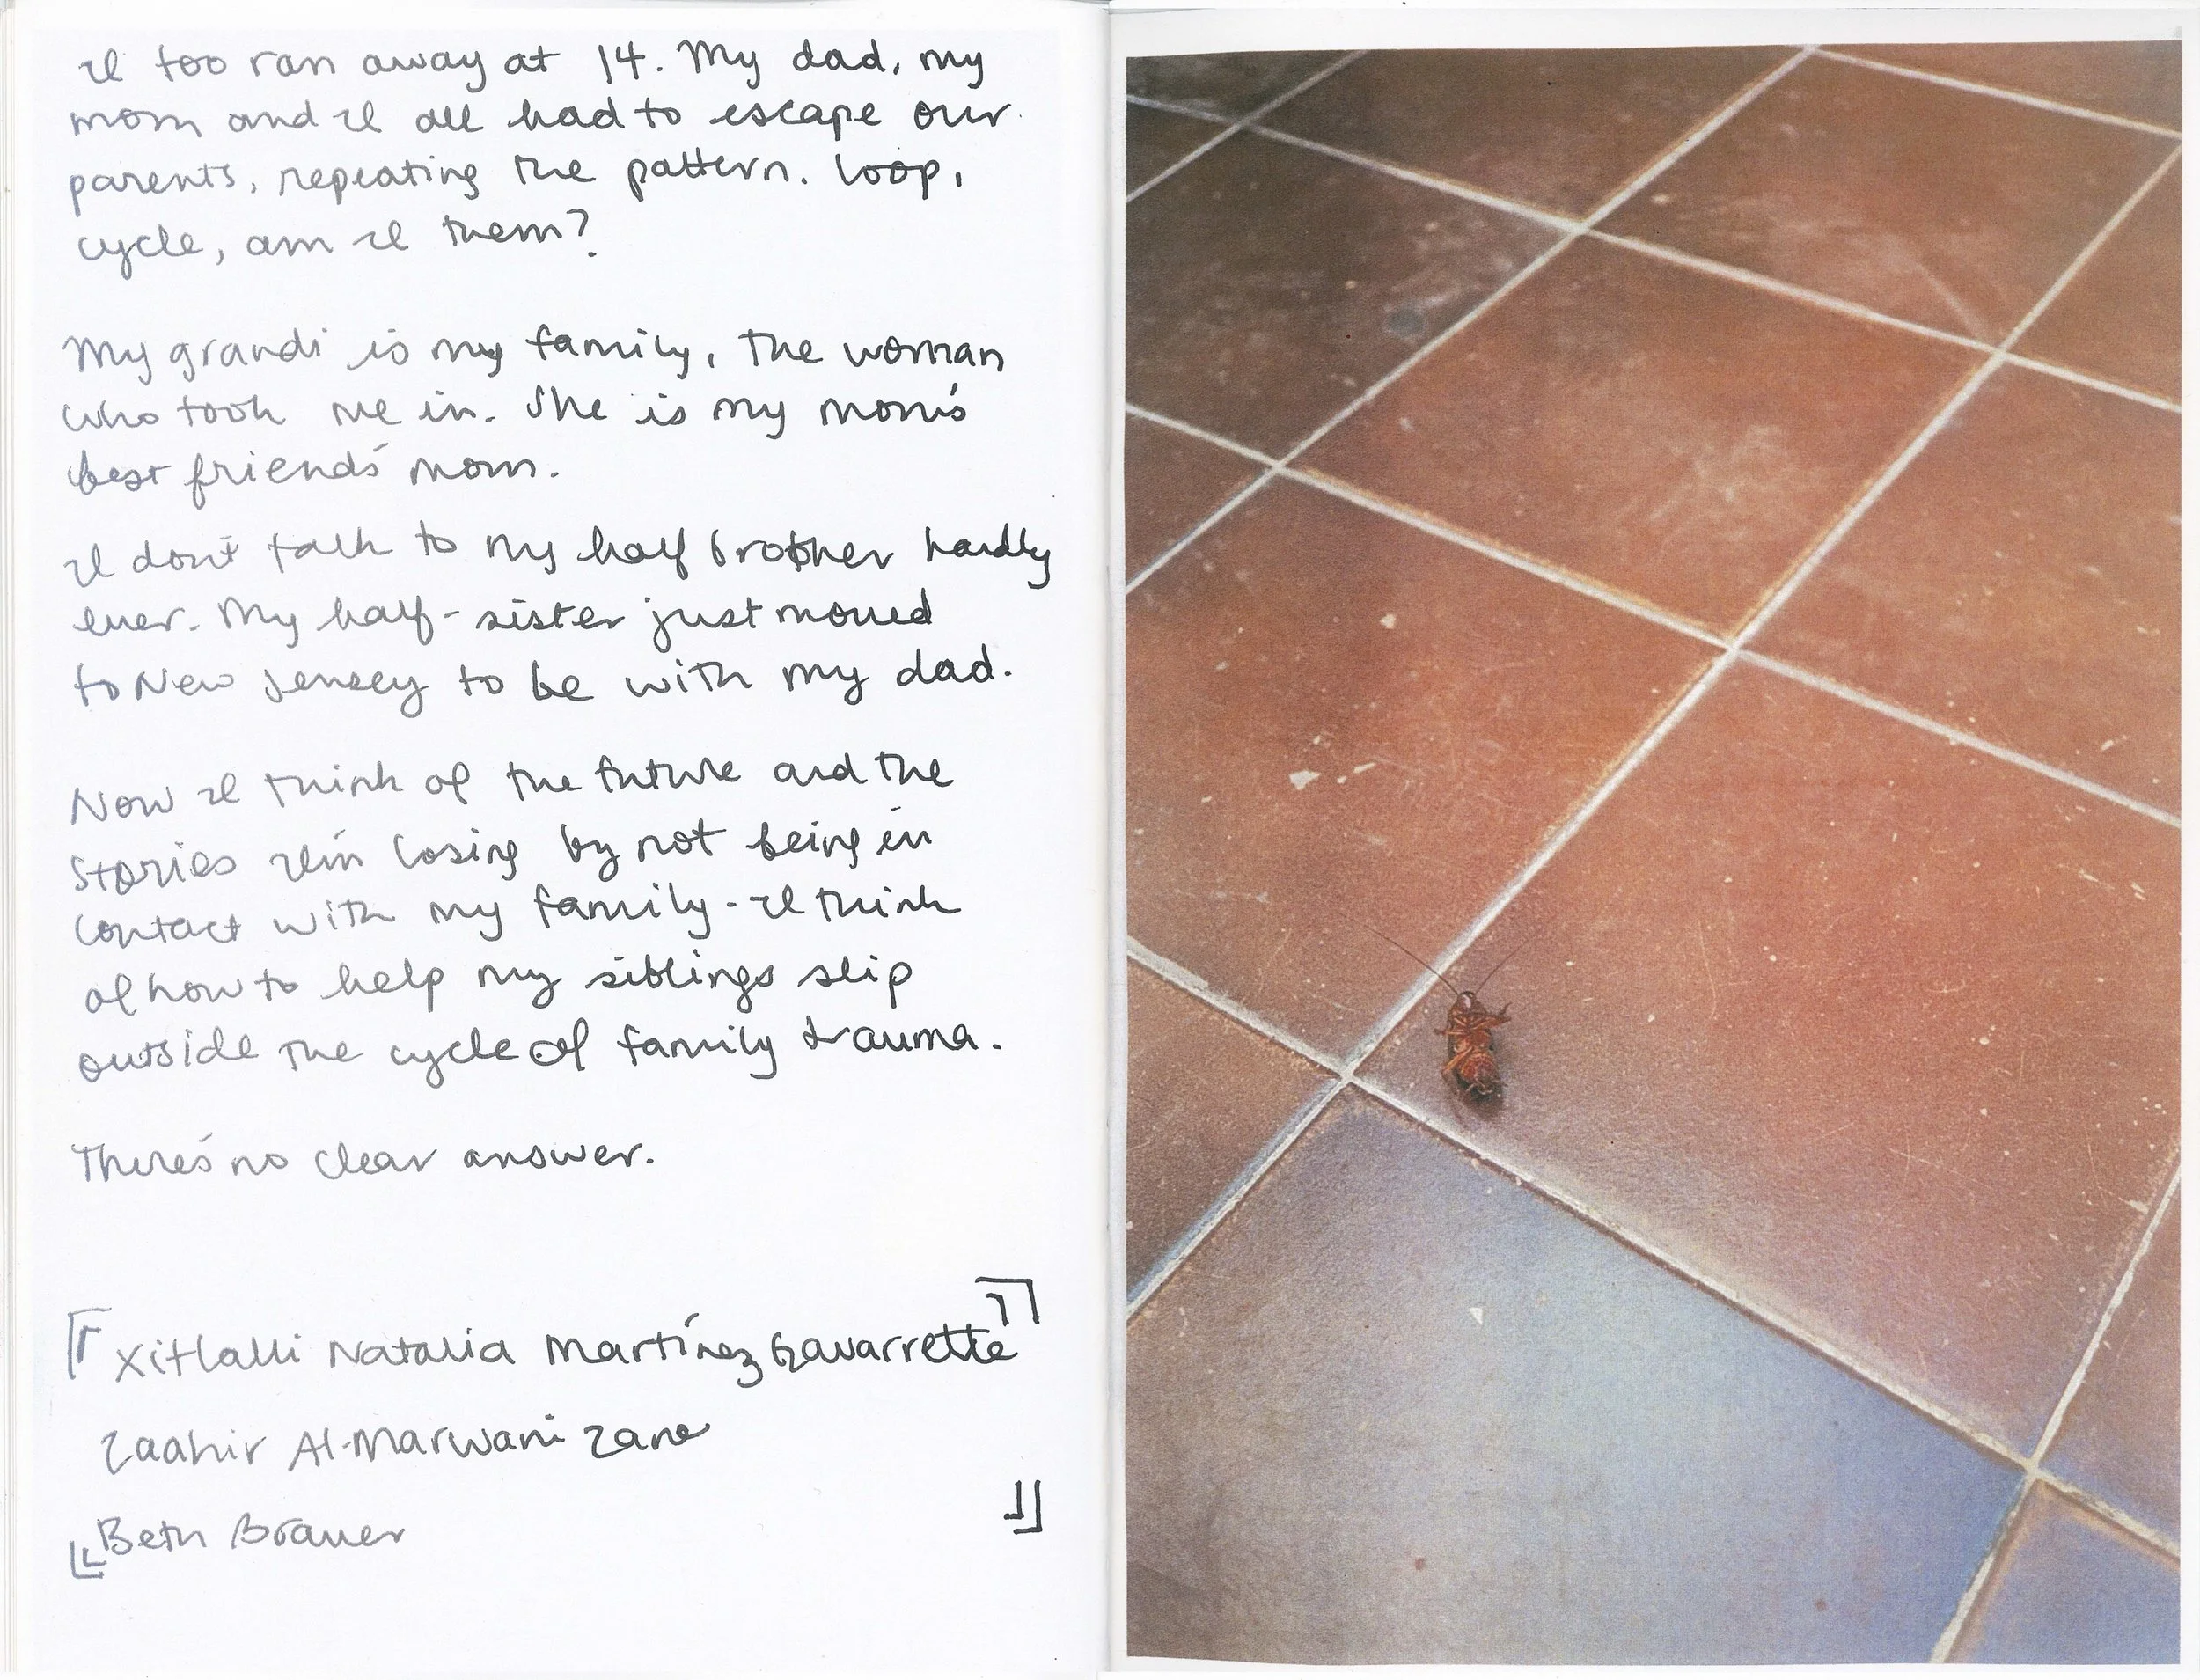 I too ran away at 14. My dad, my
mom and I all had to escape our
parents, repeating the pattern. Loop,
cycle, am I them?
My grandi is my family, the woman
who took me in. She is my mom's
best friend's mom.
I don't talk to my half brother hardly
ever. My half-sister just moved
to New Jersey to be with my dad.
Now I think of the future and the
stories I'm losing by not being in
contact with my family - I think
of how to help my siblings slip
outside the cycle of family trauma.
There's no clear answer.
Xitlalli Natalia Martínez Gavarrette
Zaahir Al-Marwani Zane
Beth Brauer